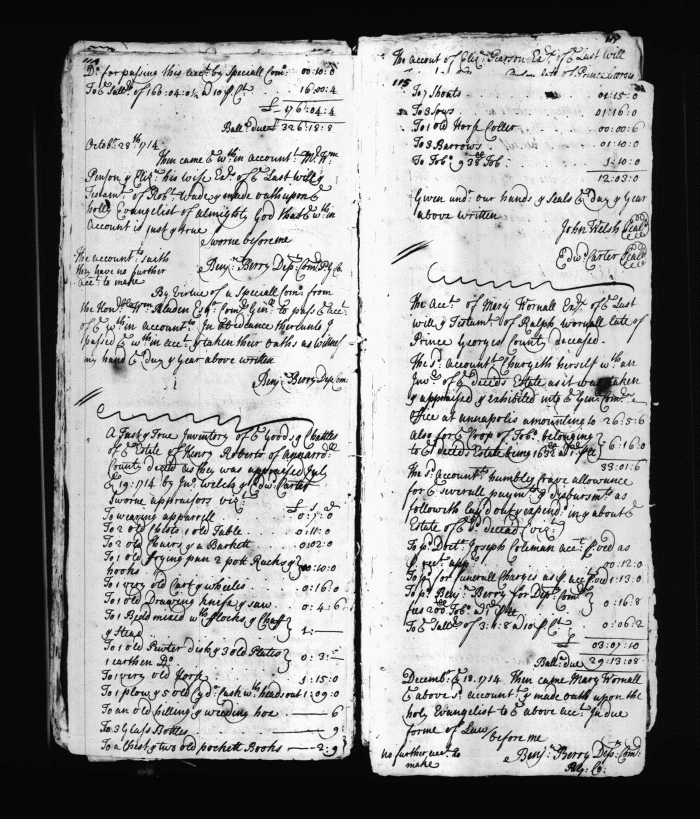 Do for passing this acct by Speciall Com: 00:10:0
To Sallr of 160:04:0½ a 10 p Ct 16:00:4
£ 176:04:4
Ball: due 326:18:8
Octobr 28th 1714
Then came wthin account Mr Wm
Penson & Eliz: his wife Exx of Last will &
Testamt of Robt Wade & made oath upon
holly Evangelist of almighty God that wth in
account is just & true
Sworne before me
The accounts saith they have no further acct to make
Benj: Berry Dep: Com: P: G: Co.
By Virtue of a Speciall Com: from
the Honble Wm Bladen Esqr Com: Genll to pass acct
of wth in accounts In obedience thereunto I
passed wth in acct & taken their oaths as witness
my hand day & year above written
Benj: Berry Dep: Com:
A Just & True Inventory of Goods & Chattles
of Estate of Henry Roberts of annarrdll
County deced as they was appraised July
19: 1714 by Jno: Welch & Edwd: Carter
Sworne appraisors vizt
£ s d
To wearing apparrell 0:5:0
To 2 old Chests 1 old Table 0:11:0
To 2 old Chairs & a Baskett 0:02:0
To 1 old frying pan 2 pott Racks & hooks 00:10:0
To 1 very old Cart & wheeles 0:16:0
To 1 old Drawing knife & saw 0:4:6
To 1 Bedd mixed wth flocks & Chaff & Stead 1:—
To 1 old Pewter dish & 3 old Plates 1 earthen Do 0:3:—
To 1 very old horse 1:15:0
To 1 plow & 5 old Cydr Cask wth heads out 1:09:0
To an old hilling & weeding hoe — 6
To 3 Glass Bottles — 9
To a Chest & two old pockett Books — 2:9
115
The account of Eliz: Pearson Exx of Last Will
To 7 Shoats 01:15:0
To 3 Sows 01:16:0
To 1 old Horse Coller 00:00:6
To 3 Barrows 01:10:0
To Tobo 3:10:0
12:03:0
Given undr our hands & Seals day & year
above written
John Welsh Seal
Edwd Carter Seal
The Acct of Mary Wornall Exx of Last
will & Testamt of Ralph wornall late of
Prince Georges County deceased
The sd accountt Chargeth herself wth an
Invry of deceds Estate as it was taken
& appraised & exhibited into Genll Comrs
office at annapolis amounting to 26:5:6
Also for Crop of Tobo belonging
to deceds Estate being 1632 a 1d p 6:16:0
33:01:6
The sd Accountt humbly Crave allowance
for severall payments & disbursmts as
followeth layd out & expend: in & about
Estate of sd deced vizt
To pd Doctr Joseph Coleman acct p ved as
p rect app 00:12:0
To pd for funerall Charges as p acct p ved 1:13:0
To pd Benj: Berry for Dep: Coms fees 200 Tobo 0:16:8
To Sallr of 3:1:8 a 10 p Ct 0:06:2
£ 03:07:10
Ball: due 29:13:08
Decembr 18: 1714 Then came Mary Wornall
above sd accountt & made oath upon the
holy Evangelist to above acct In due
forme of Law before me
no further acct to make
Benj: Berry Dep: Com:
P: G: Co: